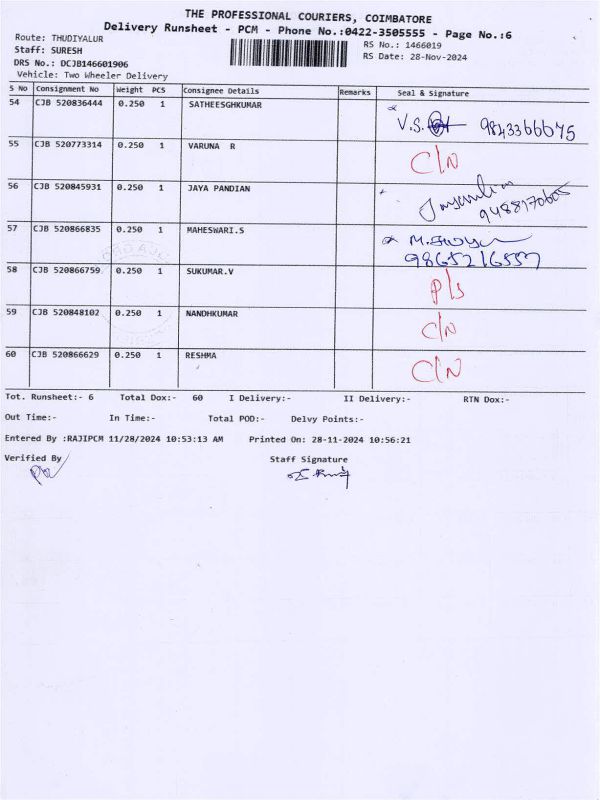 THE PROFESSIONAL COURIERS, COIMBATORE
Delivery Runsheet - PCM - Phone No.:0422-3505555 - Page No.:6
Route: THUDIYALUR
RS No.: 1466019
Staff: SURESH
RS Date: 28-Nov-2024
DRS No.: DCJB146601906
Vehicle: Two Wheeler Delivery
S No Consignment No Weight PCS Consignee Details Remarks Seal & Signature
54 CJB 520836444 0.250 1 SATHEESGHKUMAR V.S. 9843366675
55 CJB 520773314 0.250 1 VARUNA R C/N
56 CJB 520845931 0.250 1 JAYA PANDIAN 9488170605
57 CJB 520866835 0.250 1 MAHESWARI.S M. 9865216557
58 CJB 520866759 0.250 1 SUKUMAR.V P/S
59 CJB 520848102 0.250 1 NANDHKUMAR C/N
60 CJB 520866629 0.250 1 RESHMA C/N
Tot. Runsheet:- 6 Total Dox:- 60 I Delivery:- II Delivery:- RTN Dox:-
Out Time:- In Time:- Total POD:- Delvy Points:-
Entered By :RAJIPCM 11/28/2024 10:53:13 AM Printed On: 28-11-2024 10:56:21
Verified By Staff Signature